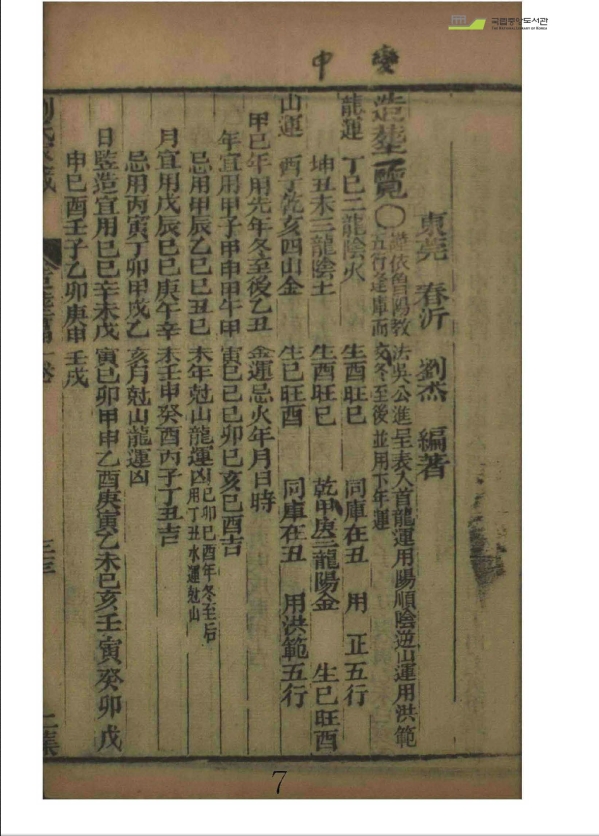 국립중앙도서관
THE NATIONAL LIBRARY OF KOREA
變中
東莞 春沂 劉杰 編著
造葬一覽〇謹依曾陽教法吳公進呈表入首龍運用陽順陰逆山運用洪範
五行逢庫而交冬至後並用下年運
龍運 丁巳二龍陰火 生酉旺巳 同庫在丑 用正五行
坤丑未三龍陰土 生酉旺巳 乾甲庚三龍陽金 生巳旺酉
山運 酉丁乾亥四山金 生巳旺酉 同庫在丑 用洪範五行
甲巳年用先年冬至後乙丑金運忌火年月日時
年宜用甲子甲申甲午甲寅巳巳巳卯巳亥巳酉吉
忌用甲辰乙巳巳丑巳未年尅山龍運凶巳卯巳酉年冬至后
用丁丑水運尅山
月宜用戊辰巳巳庚午辛未壬申癸酉丙子丁丑吉
忌用丙寅丁卯甲戌乙亥月尅山龍運凶
日豎造宜用巳巳辛未戊寅巳卯甲申乙酉庚寅乙未巳亥壬寅癸卯戊
申巳酉壬子乙卯庚申壬戌
二集
7